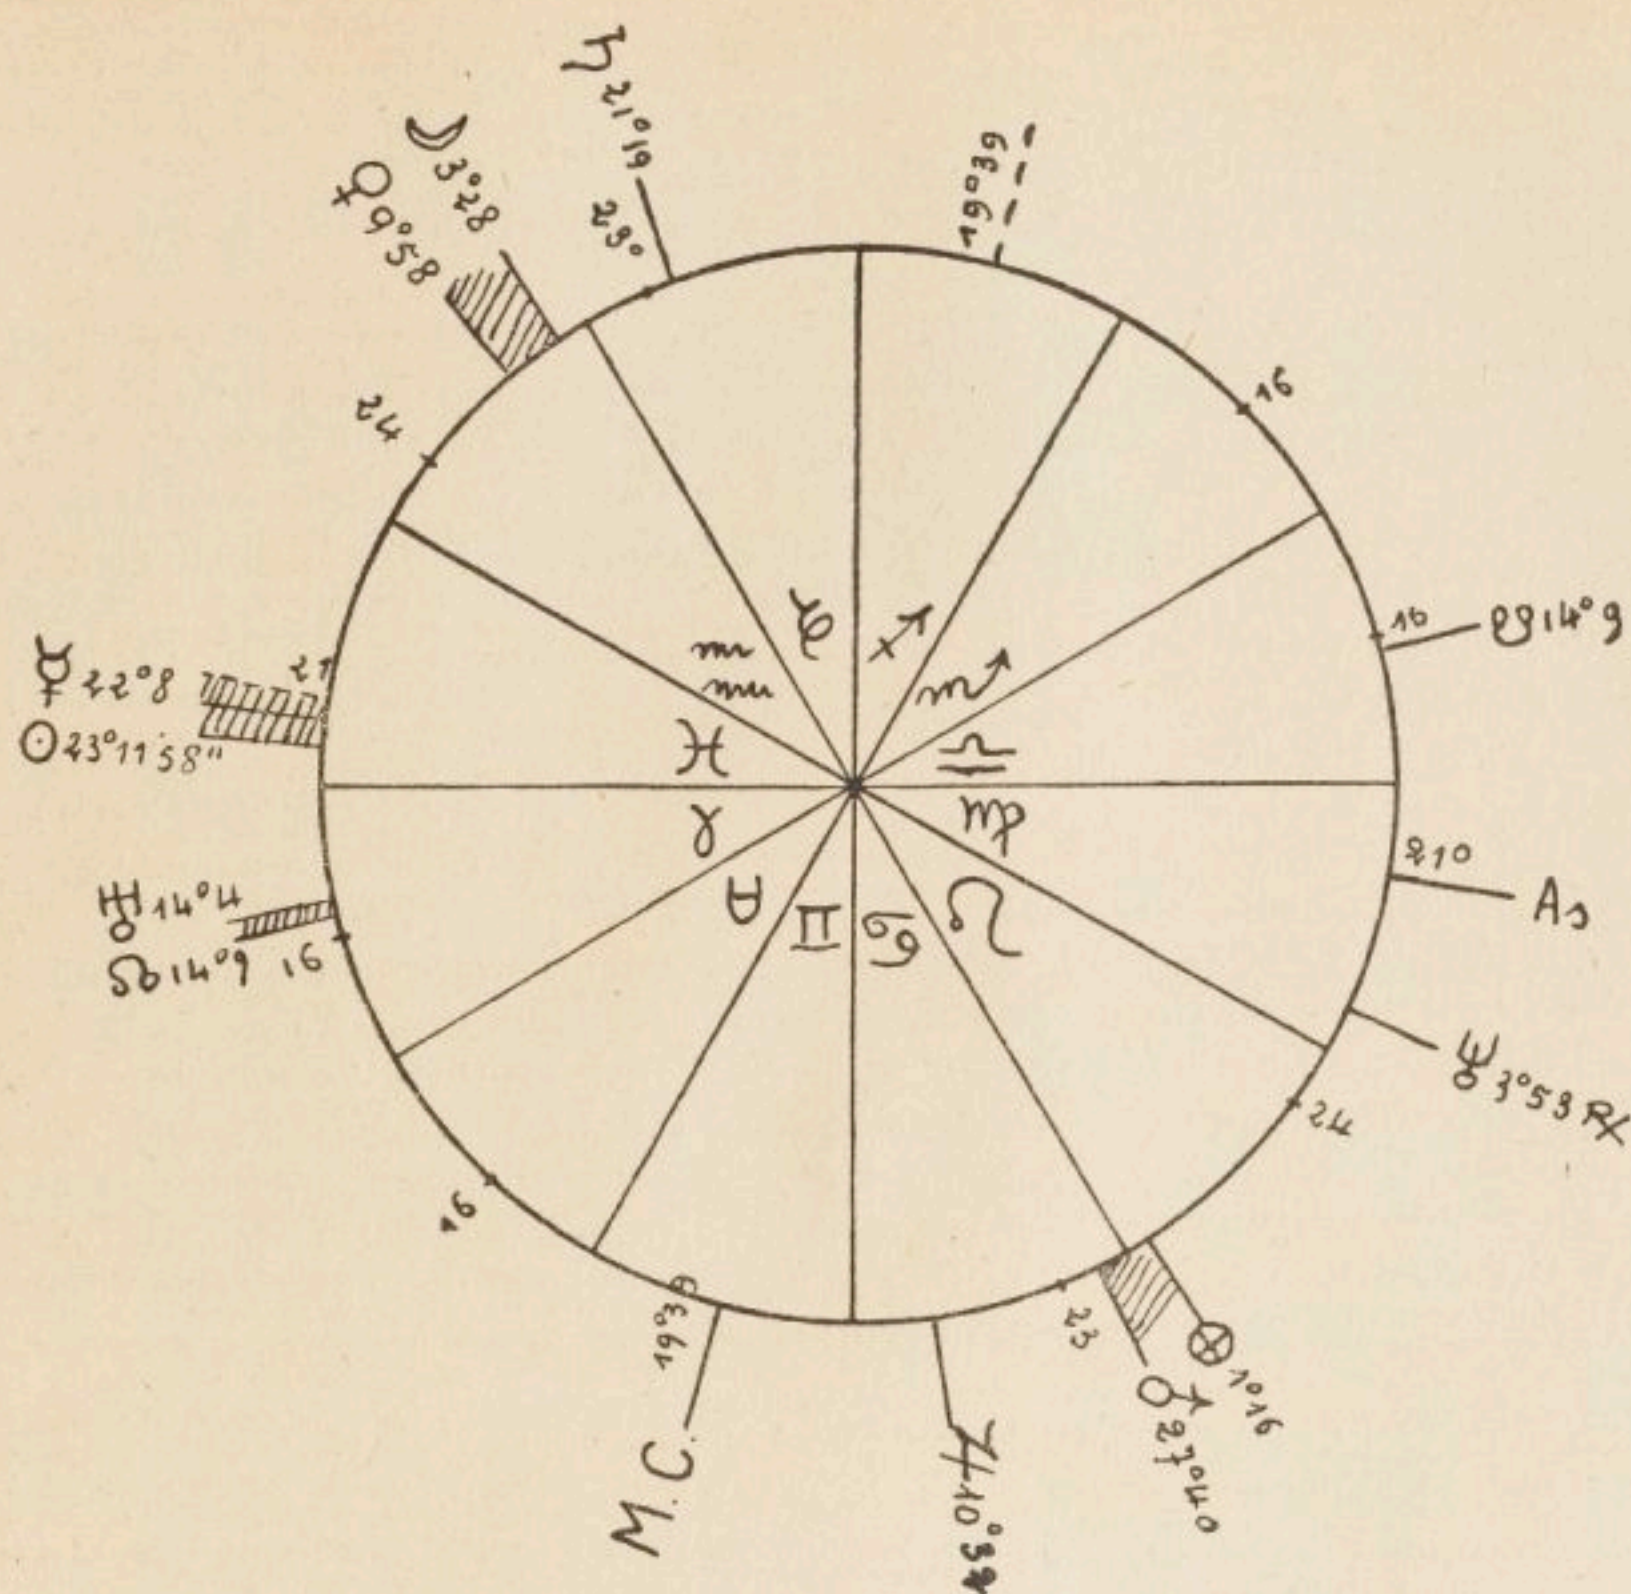 ♄ 21°19
29°
☽ 3°28
♀ 9°58
24
19°39
16
☋ 14°9
16
☿ 22°8
21
☉ 23°11'58"
♑
♐
♒
♏
♓
♎
♈
♍
♉
♊
♋
♌
210
As
♅ 14°4
☊ 14°9 16
♆ 3°53 ℞
24
16
19°39
M.C.
♃ 10°39
23
⊗ 1°16
♂ 27°40